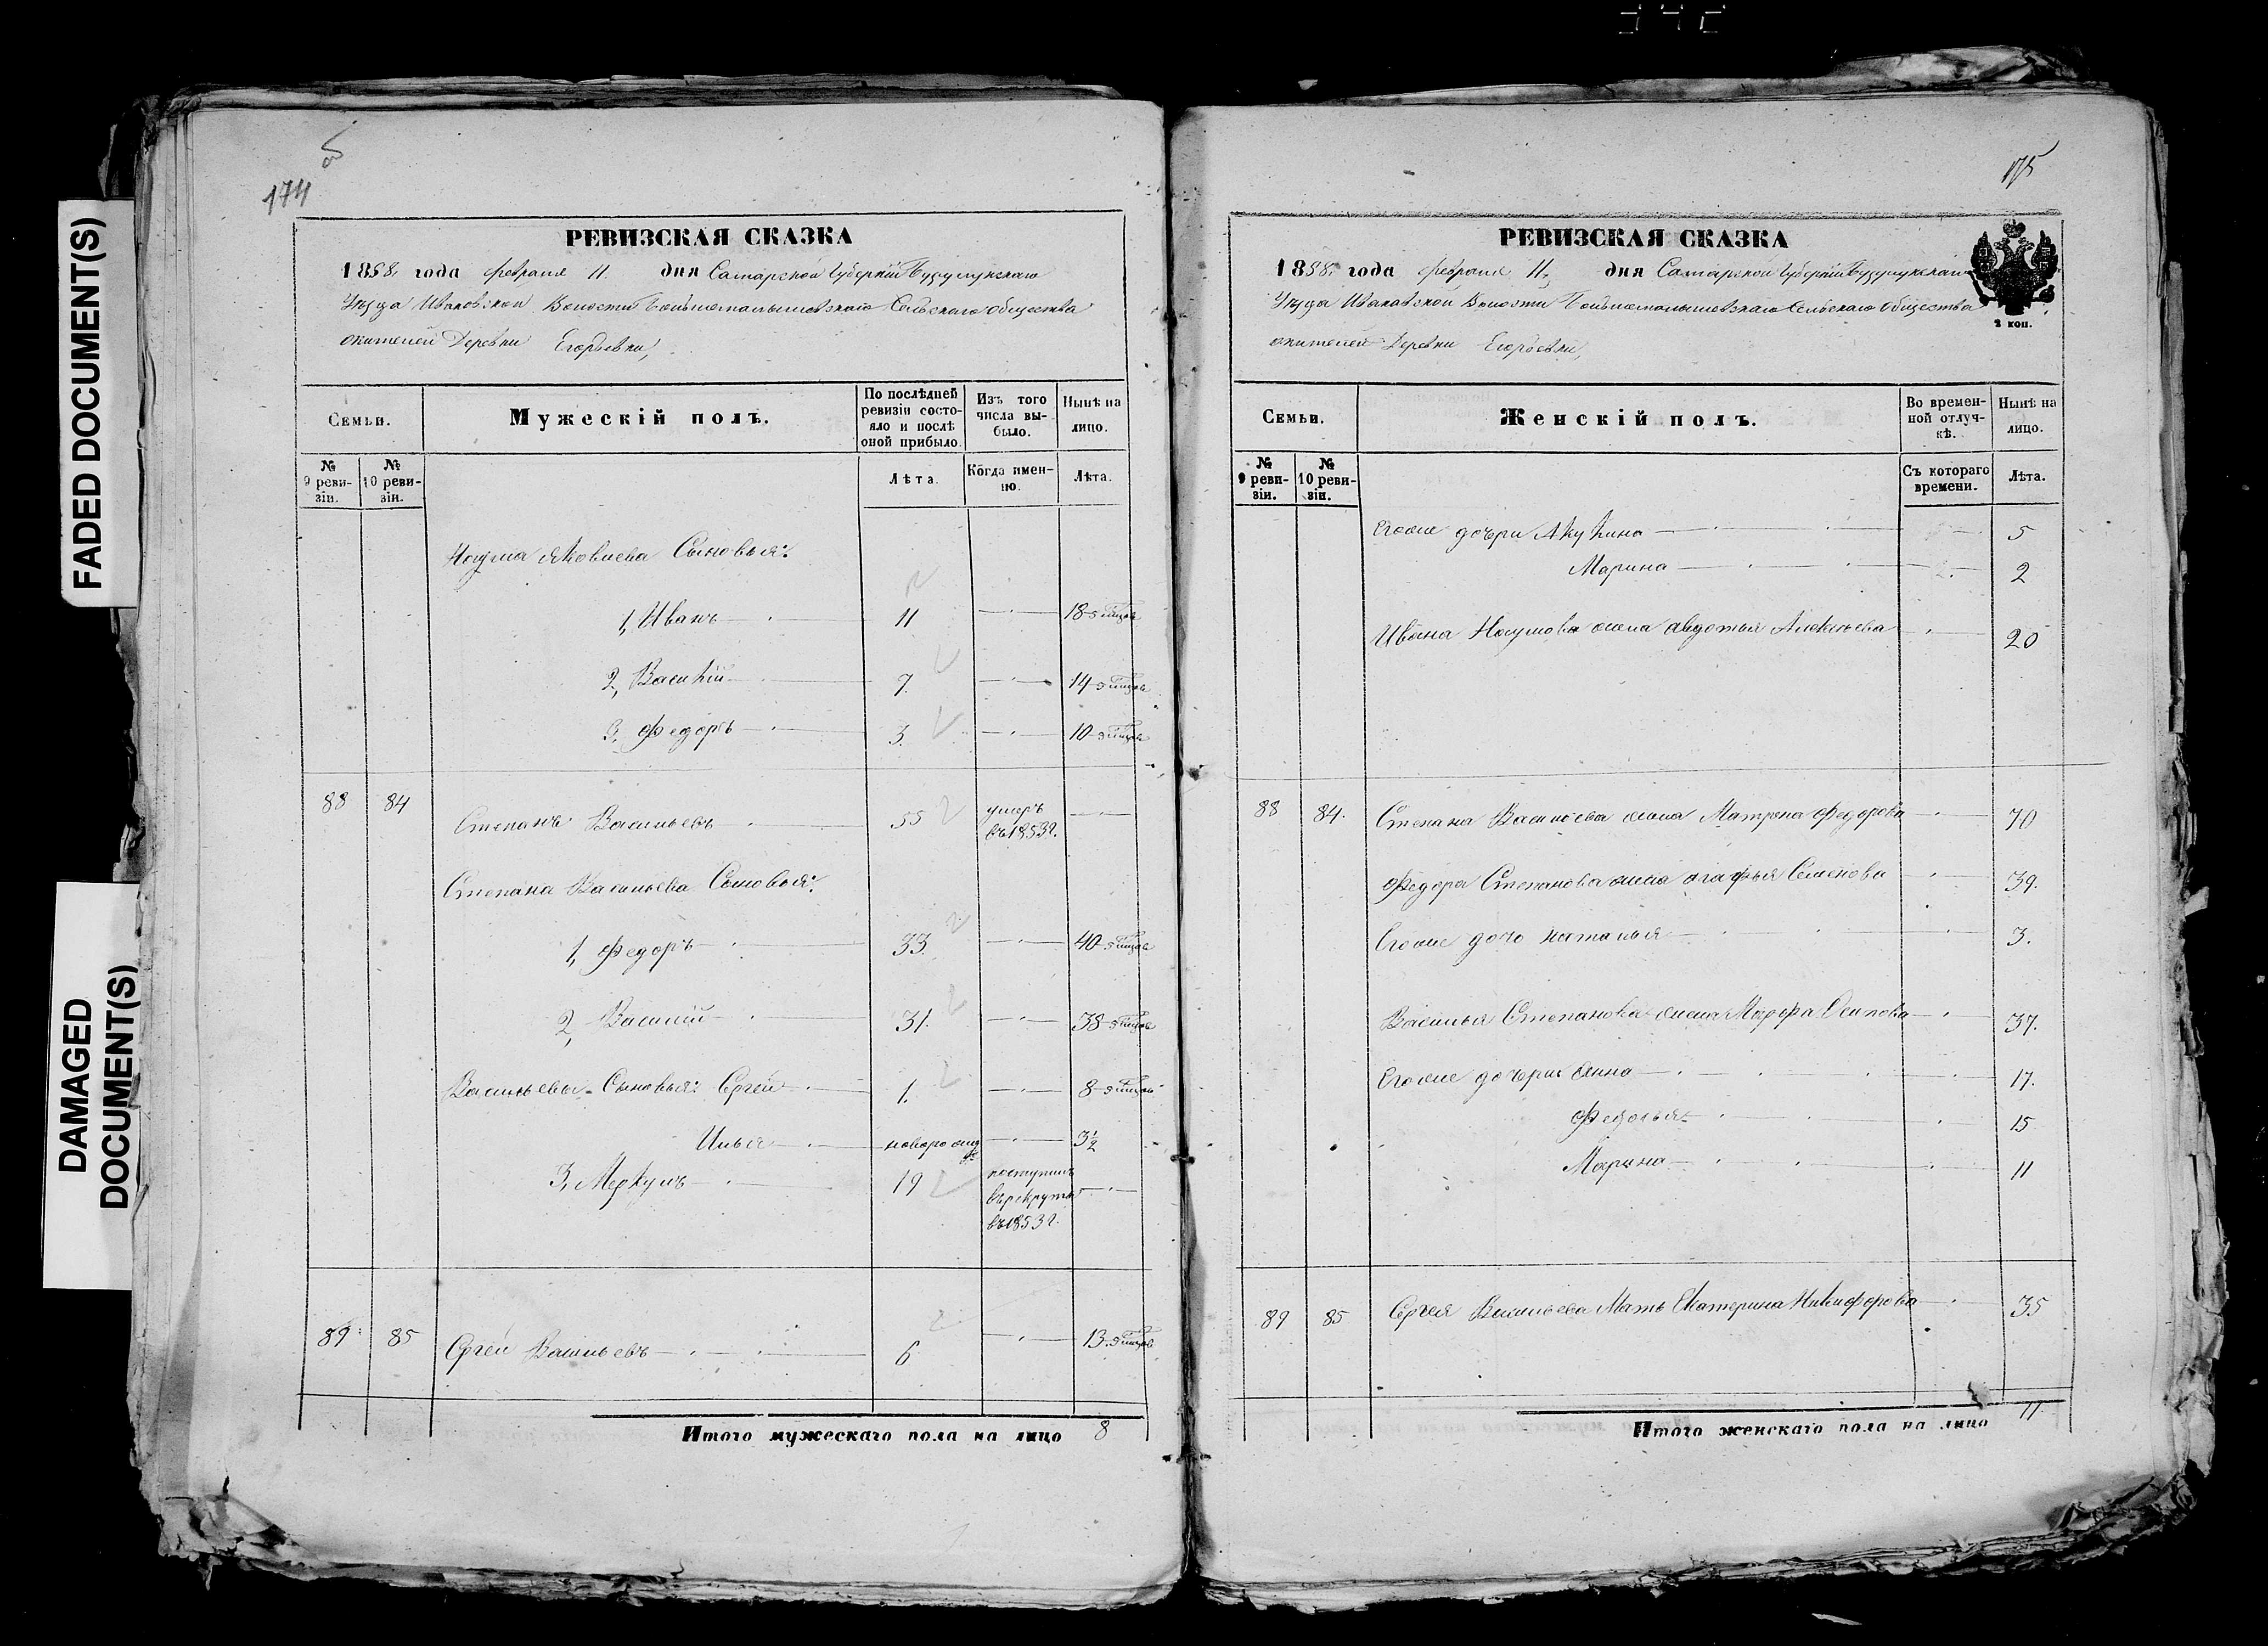 FADED DOCUMENT(S)
DAMAGED
DOCUMENT(S)
174
РЕВИЗСКАЯ СКАЗКА
1858 года февраля 11 дня Самарской Губерніи Бузулукскаго
Уѣзда Ивановской Волости Сельскаго Общества
жителей Деревни Егорьевки,
Семьи.
Мужескій полъ.
По послѣдней ревизіи состояло и послѣ оной прибыло.
Изъ того числа выбыло.
Нынѣ на лицо.
№ 9 ревизіи.
№ 10 ревизіи.
Лѣта.
Когда именно.
Лѣта.
Наума Яковлева Сыновья:
1, Иванъ 11 18
2, Василій 7. 14
3, Федоръ 3. 10
88 84 Степанъ Васильевъ 55 умеръ въ 1853 г.
Степана Васильева Сыновья:
1, Федоръ 33. 40
2, Василій 31. 38
Васильевы Сыновья: Сергей 1. 8
Илья новорожд 3½
3, Меркулъ 19 поступилъ въ рекруты въ 1853 г.
89 85 Сергей Васильевъ 6 13
Итого мужескаго пола на лицо 8
175
РЕВИЗСКАЯ СКАЗКА
1858 года февраля 11, дня Самарской Губерніи Бузулукскаго
Уѣзда Ивановской Волости Сельскаго Общества
жителей Деревни Егорьевки,
2 коп.
Семьи.
Женскій полъ.
Во временной отлучкѣ.
Нынѣ на лицо.
№ 9 ревизіи.
№ 10 ревизіи.
Съ котораго времени.
Лѣта.
Его же дочери Акулина 5
Марина 2
Ивана Наумова жена Авдотья Алексѣева 20
88 84. Степана Васильева жена Матрена Федорова 70
Федора Степанова жена Агафья Семенова 39.
Его же дочь Наталья 3.
Василья Степанова жена Марфа Осипова 37.
Его же дочери Анна 17.
Федосья 15
Марина 11
89 85 Сергея Васильева Мать Екатерина Никифорова 35
Итого женскаго пола на лицо 11.